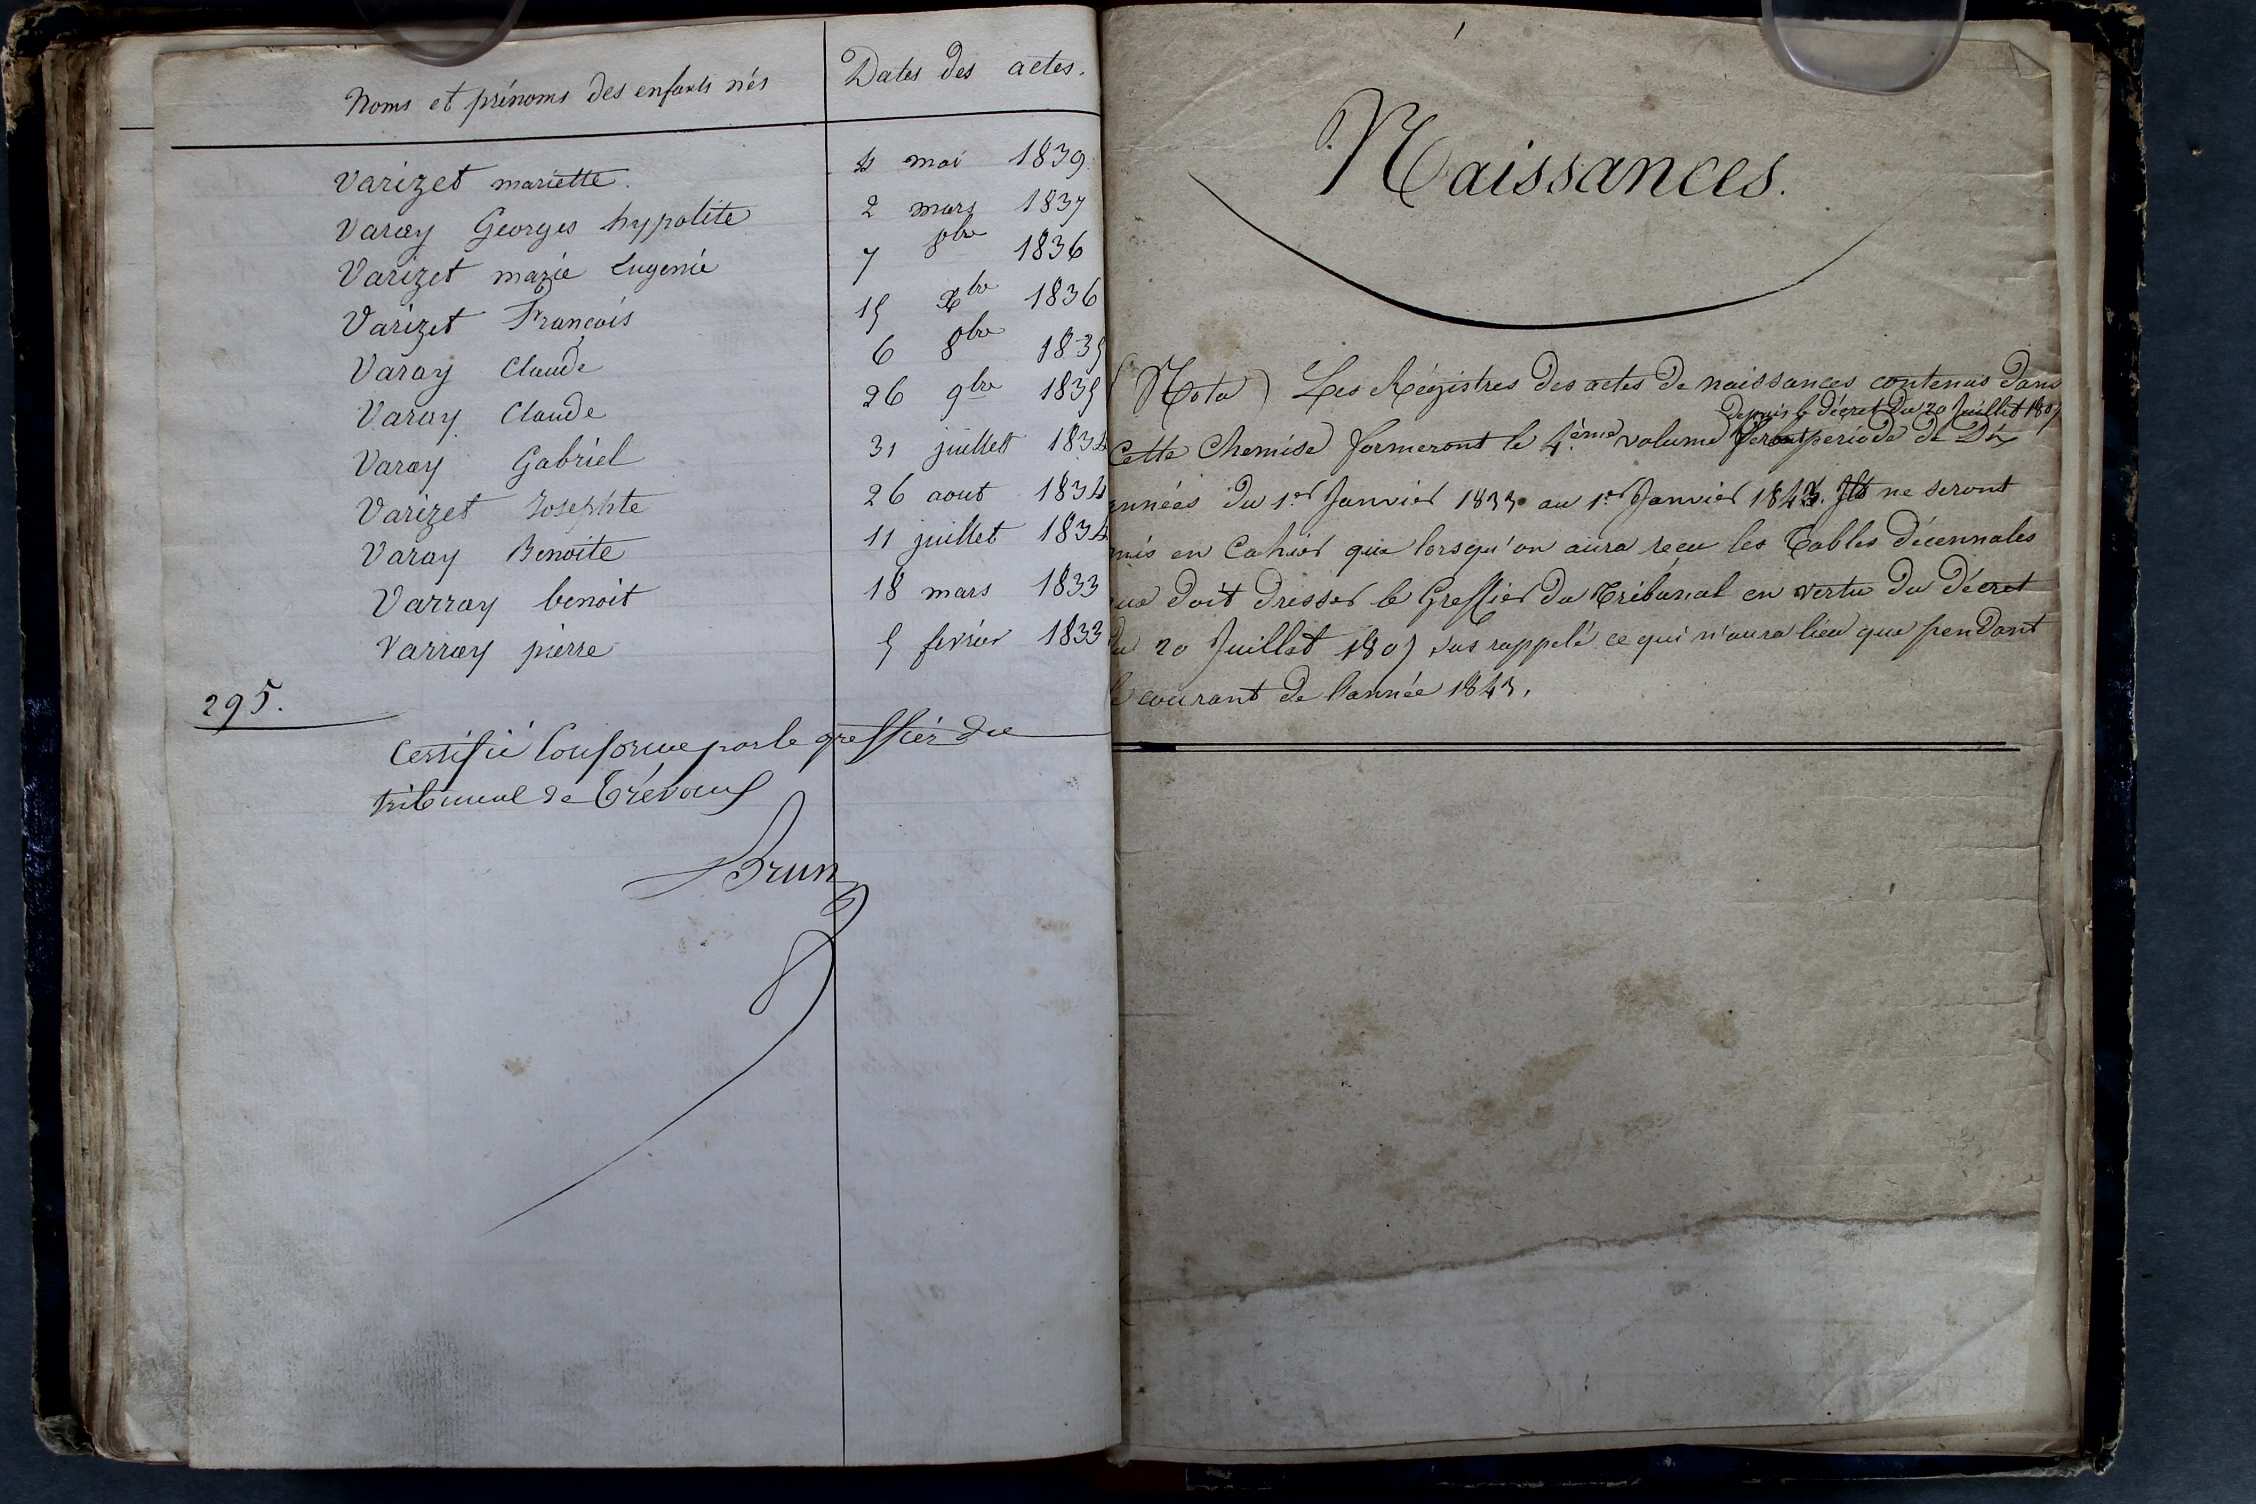 Noms et prénoms des enfants nés
Dates des actes.
Varizet mariette. 4 mai 1839
Varay Georges hypolite 2 mars 1837
Varizet marie Eugenie 7 8bre 1836
Varizet François 15 xbre 1836
Varay Claude 6 8bre 1835
Varay Claude 26 9bre 1835
Varay Gabriel 31 juillet 1834
Varizet Josephte 26 aout 1834
Varay Benoite 11 juillet 1834
Varray benoit 18 mars 1833
Varray pierre 5 fevrier 1833
295.
Certifié Conforme par le greffier du
tribunal de Trévoux
Brun
Naissances.
(Nota) Les Régistres des actes de naissances contenus dans
depuis le décret du 20 Juillet 1807
Cette Chemise formeront le 4.ème volume période de Dix
années du 1.er Janvier 1833 au 1.er Janvier 1843. Ils ne seront
mis en Cahier que lorsqu'on aura reçu les Tables décennales
que doit dresser le Greffier du Tribunal en vertu du décret
du 20 Juillet 1807 sus rappelé ce qui n'aura lieu que pendant
le courant de l'année 1843.